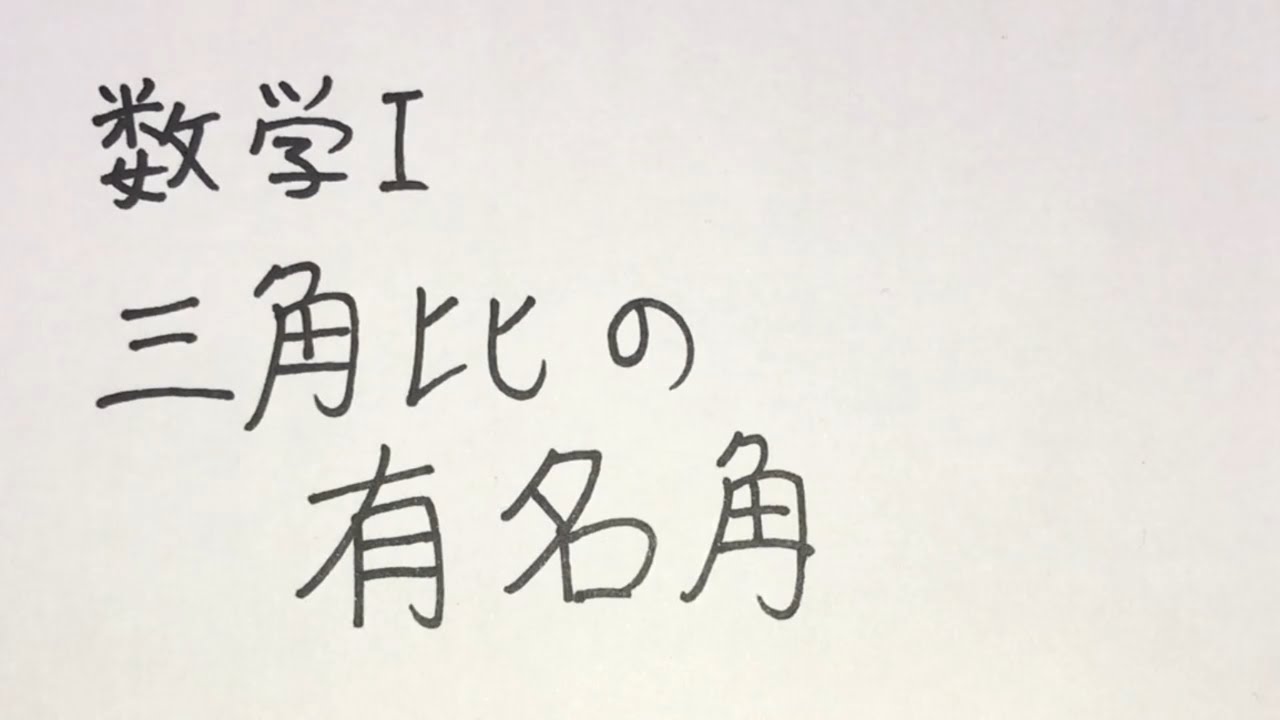 数学I
三角比の
有名角